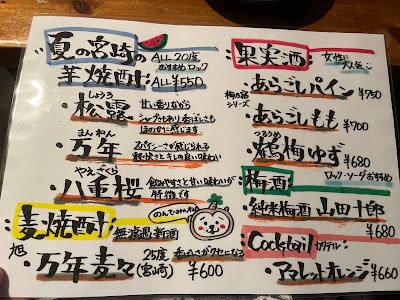 夏の宮崎の
芋焼酎
ALL 20度
おすすめロック
ALL ¥550
しょうろ
松露
甘い香りながら
シャープさもあり香ばしさも
ほのかに感じます
まんねん
万年
スパイシーさが感じられる
軽快さとキレの良い味わい
やえざくら
八重桜
飲みやすさと甘い味わいが
特徴です
麦焼酎
無濾過新酒
旭
万年麦々
25度
(宮崎)
香ばしさがクセになる
¥600
果実酒
女性に
大人気♡
梅の宿
シリーズ
あらごしパイン ¥750
あらごしもも ¥700
つるうめ
鶴梅ゆず ¥680
梅酒
ロック・ソーダおすすめ
純米梅酒 山田十郎
¥680
Cocktail カクテル
アマレットオレンジ ¥660